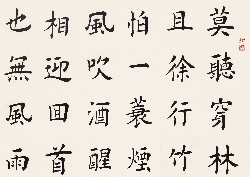 莫聽穿林
且徐行竹
怕一蓑煙
風吹酒醒
相迎回首
也無風雨